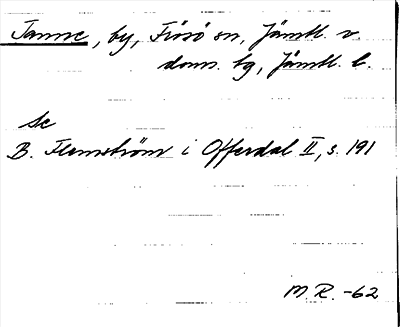 Tanne, by, Frösö sn, Jämtl. v.
doms. tg, Jämtl. l.
Se
B. Flemström i Offerdal II, s. 191
M.R. -62